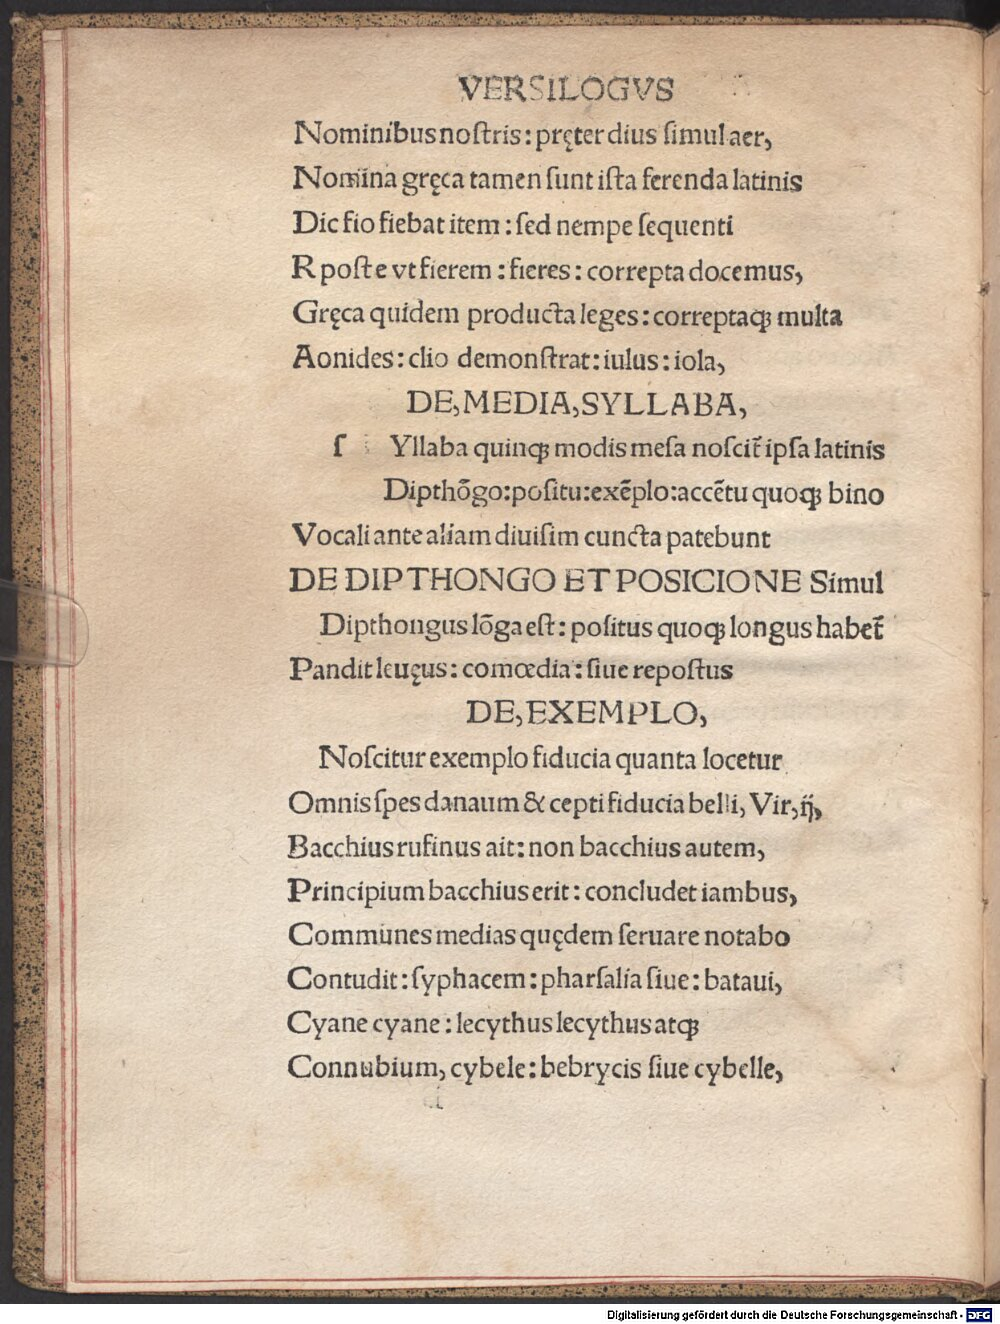 VERSILOGVS
Nominibus noſtris: pręter dius ſimul aer,
Nomina gręca tamen ſunt iſta ferenda latinis
Dic fio fiebat item: ſed nempe ſequenti
R poſt e vt fierem: fieres: correpta docemus,
Gręca quidem producta leges: correptaqꝫ multa
Aonides: clio demonſtrat: iulus: iola,
DE, MEDIA, SYLLABA,
ſ Yllaba quinqꝫ modis meſa noſcit᷑ ipſa latinis
Dipthōgo: poſitu: exēplo: accētu quoqꝫ bino
Vocali ante aliam diuiſim cuncta patebunt
DE DIPTHONGO ET POSICIONE Simul
Dipthongus lōga eſt: poſitus quoqꝫ longus habet᷑
Pandit leuęus: comœdia: ſiue repoſtus
DE, EXEMPLO,
Noſcitur exemplo fiducia quanta locetur
Omnis ſpes danaum & cepti fiducia belli, Vir, ij,
Bacchius rufinus ait: non bacchius autem,
Principium bacchius erit: concludet iambus,
Communes medias quędem ſeruare notabo
Contudit: ſyphacem: pharſalia ſiue: bataui,
Cyane cyane: lecythus lecythus atqꝫ
Connubium, cybele: bebrycis ſiue cybelle,
Digitalisierung gefördert durch die Deutsche Forschungsgemeinschaft - DFG